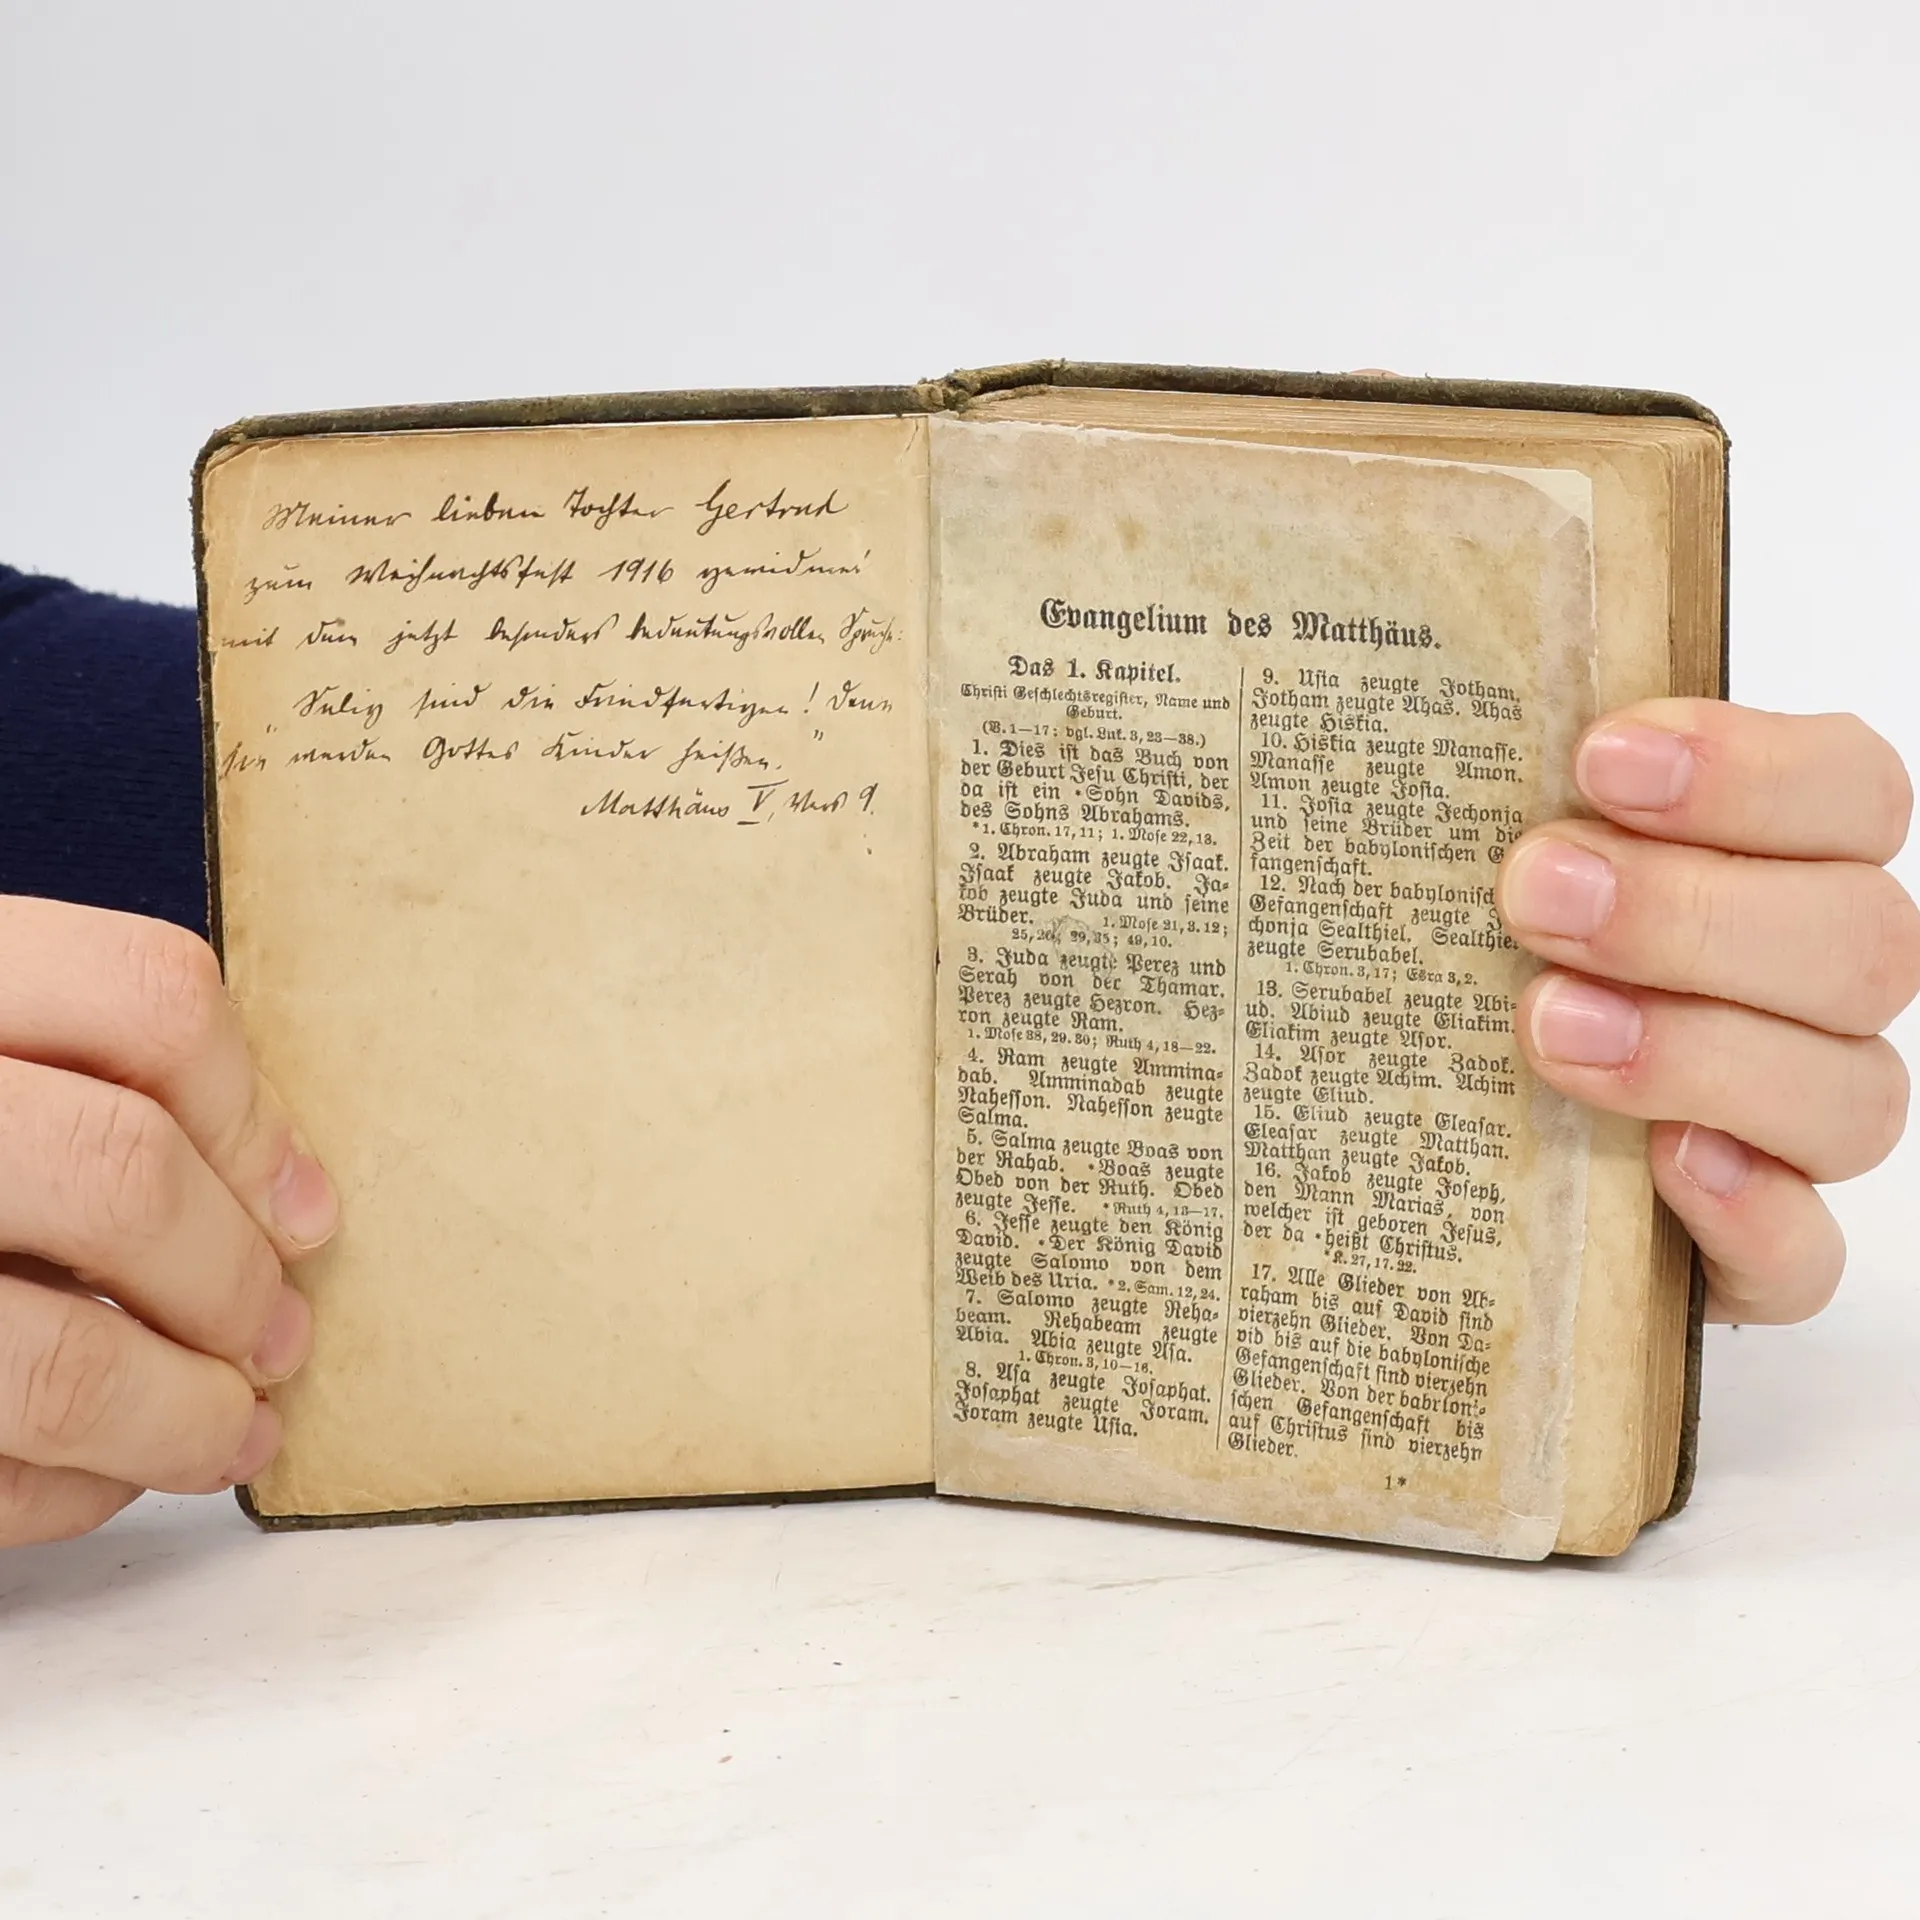 Meiner lieben Tochter Gertrud
zum Weihnachtsfest 1916 gewidmet
mit dem jetzt besonders bedeutungsvollen Spruche:
„Selig sind die Friedfertigen! Denn
sie werden Gottes Kinder heißen.“
Matthäus V, Vers 9.
Evangelium des Matthäus.
Das 1. Kapitel.
Christi Geschlechtsregister, Name und
Geburt.
(V. 1—17: vgl. Luk. 3, 23—38.)
1. Dies ist das Buch von
der Geburt Jesu Christi, der
da ist ein *Sohn Davids,
des Sohns Abrahams.
*1. Chron. 17, 11; 1. Mose 22, 18.
2. Abraham zeugte Isaak.
Isaak zeugte Jakob. Ja-
kob zeugte Juda und seine
Brüder. 1. Mose 21, 3. 12;
25, 26; 29, 35; 49, 10.
3. Juda zeugte Perez und
Serah von der Thamar.
Perez zeugte Hezron. Hez-
ron zeugte Ram.
1. Mose 38, 29. 30; Ruth 4, 18—22.
4. Ram zeugte Ammina-
dab. Amminadab zeugte
Nahesson. Nahesson zeugte
Salma.
5. Salma zeugte Boas von
der Rahab. *Boas zeugte
Obed von der Ruth. Obed
zeugte Jesse. *Ruth 4, 13—17.
6. Jesse zeugte den König
David. *Der König David
zeugte Salomo von dem
Weib des Uria. *2. Sam. 12, 24.
7. Salomo zeugte Reha-
beam. Rehabeam zeugte
Abia. Abia zeugte Asa.
1. Chron. 3, 10—16.
8. Asa zeugte Josaphat.
Josaphat zeugte Joram.
Joram zeugte Usia.
9. Usia zeugte Jotham.
Jotham zeugte Ahas. Ahas
zeugte Hiskia.
10. Hiskia zeugte Manasse.
Manasse zeugte Amon.
Amon zeugte Josia.
11. Josia zeugte Jechonja
und seine Brüder um die
Zeit der babylonischen G
fangenschaft.
12. Nach der babylonisch
Gefangenschaft zeugte J
chonja Sealthiel. Sealthiel
zeugte Serubabel.
1. Chron. 3, 17; Esra 3, 2.
13. Serubabel zeugte Abi-
ud. Abiud zeugte Eliakim.
Eliakim zeugte Asor.
14. Asor zeugte Zadok.
Zadok zeugte Achim. Achim
zeugte Eliud.
15. Eliud zeugte Eleasar.
Eleasar zeugte Matthan.
Matthan zeugte Jakob.
16. Jakob zeugte Joseph,
den Mann Marias, von
welcher ist geboren Jesus,
der da *heißt Christus.
*K. 27, 17. 22.
17. Alle Glieder von Ab-
raham bis auf David sind
vierzehn Glieder. Von Da-
vid bis auf die babylonische
Gefangenschaft sind vierzehn
Glieder. Von der babyloni-
schen Gefangenschaft bis
auf Christus sind vierzehn
Glieder.
1*